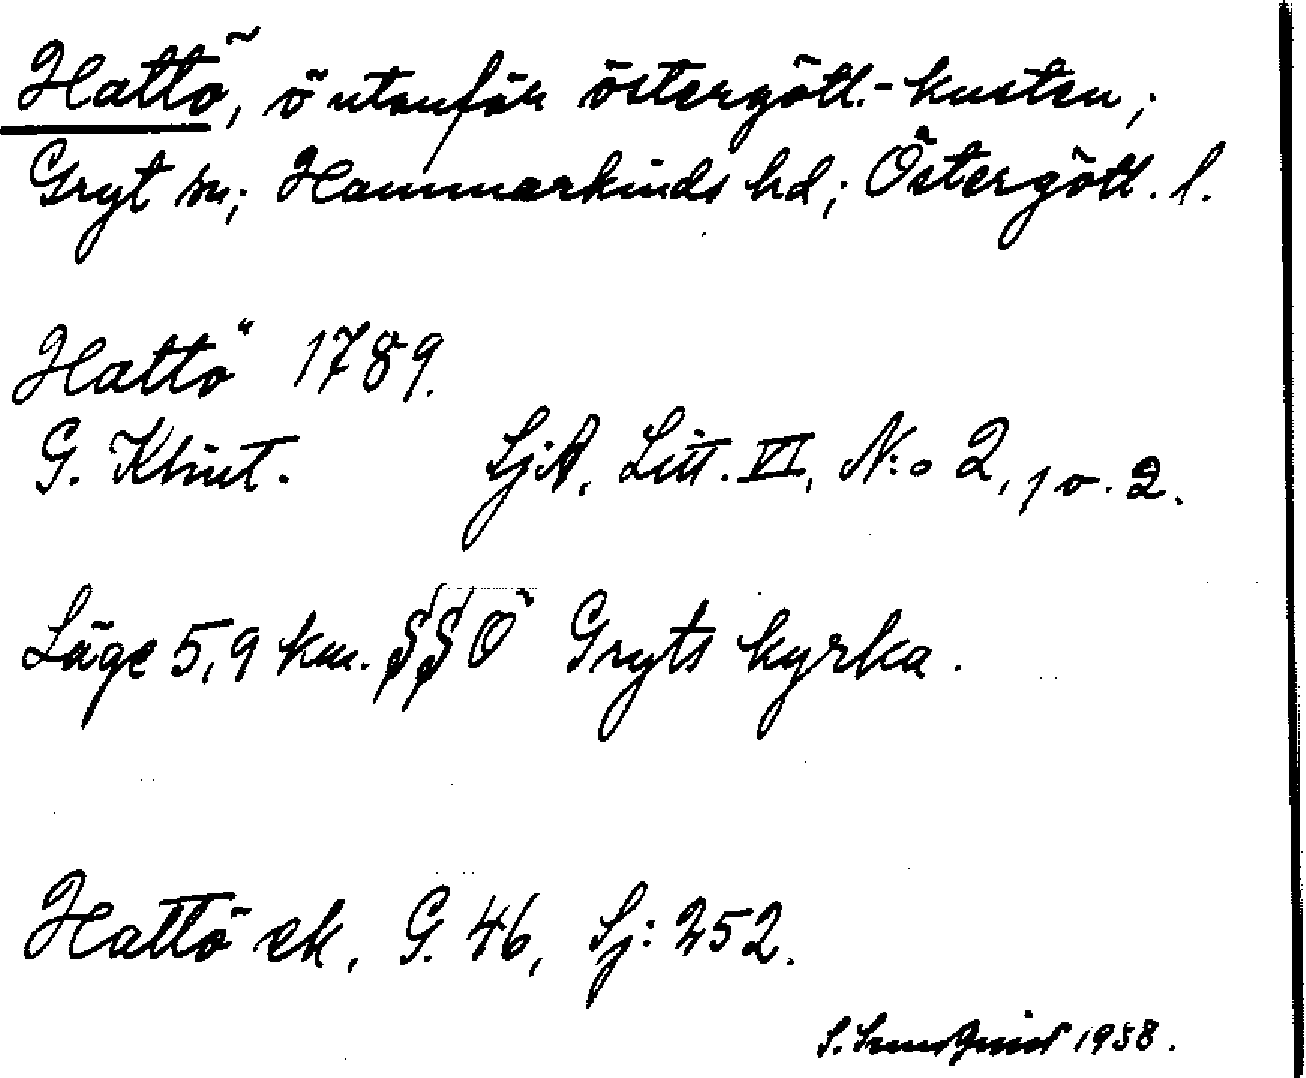 Hattö, ö utanför östergötl.-kusten;
Gryt sn; Hammarkinds hd; Östergötl. l.
Hattö 1789.
G. Klint. SjA, Litt. VI, N:o 2, p. 2.
Läge 5,9 km. SSÖ Gryts kyrka.
Hattö ek, G. 46, Sj: 252.
S. 1958.